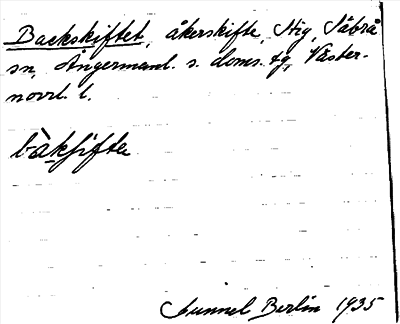 Backskiftet, åkerskifte, Stig, Säbrå
sn, Ångermanl. s. doms. tg, Väster-
norrl. l.
bàkʃifte
Gunnel Berlin 1935